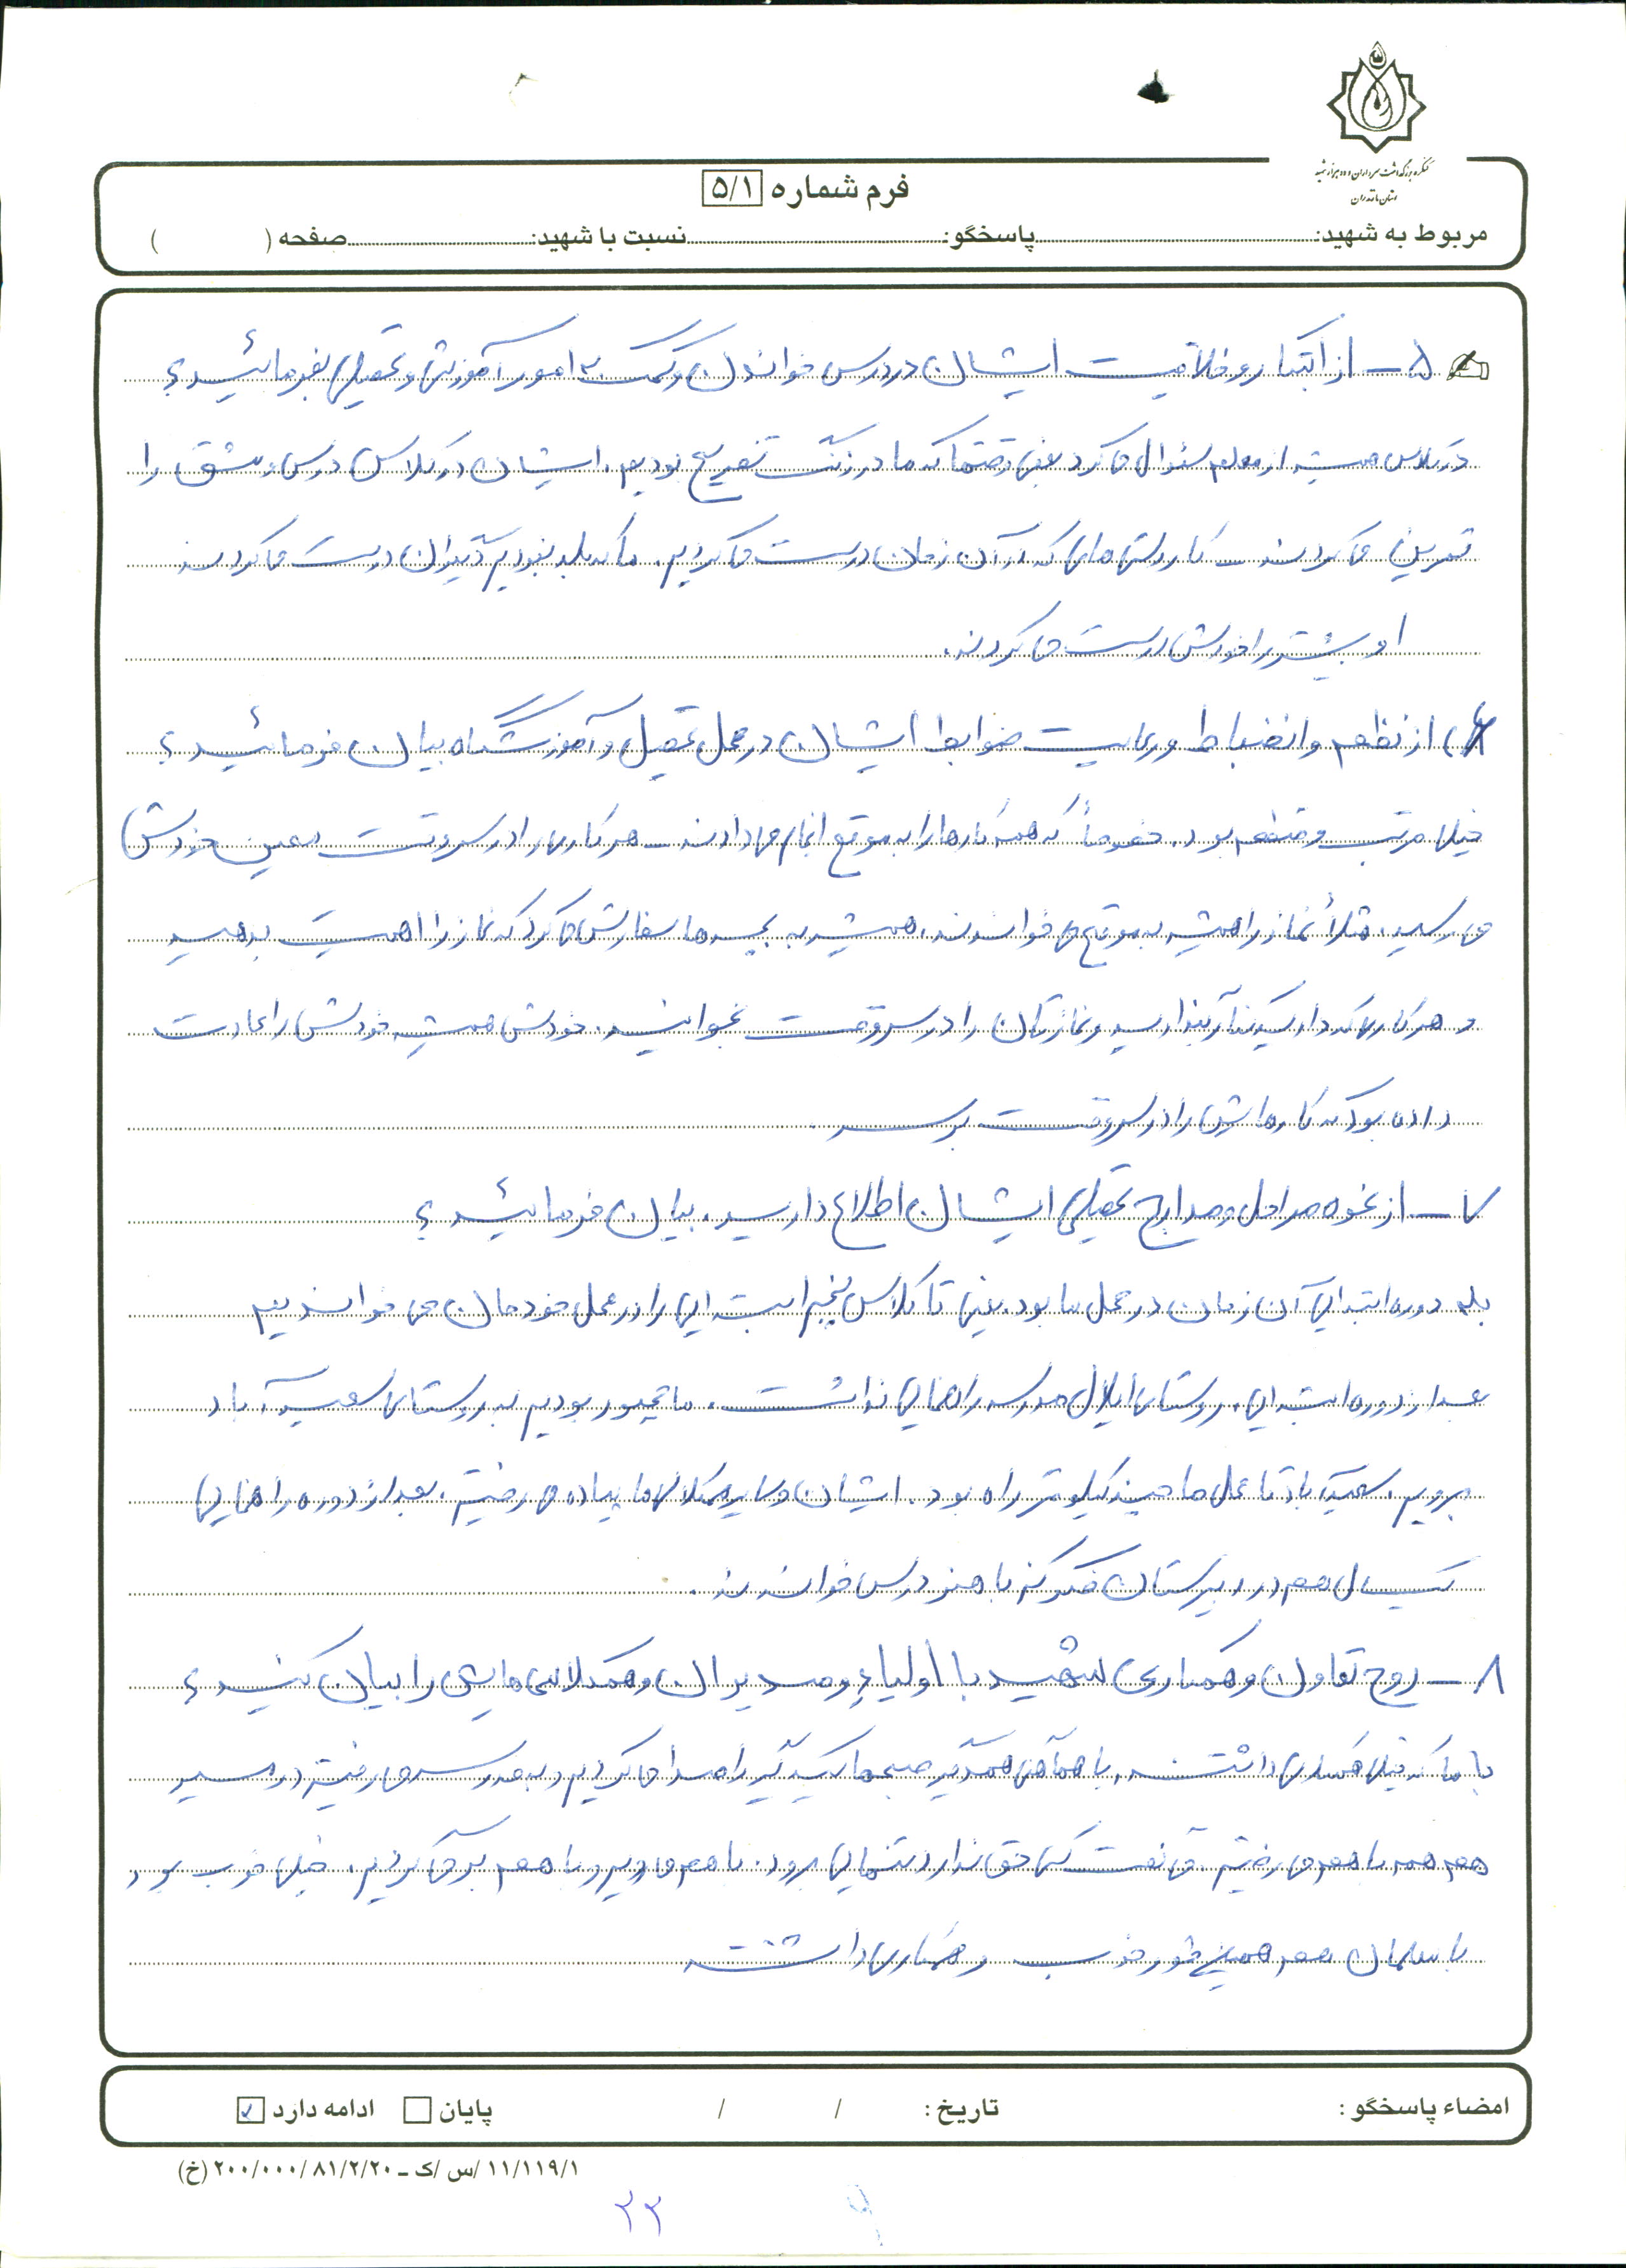 کنگره بزرگداشت سرداران و ده هزار شهید
استان مازندران
فرم شماره ۵/۱
مربوط به شهید: پاسخگو: نسبت با شهید: صفحه ( )
۵ - از ابتکار و خلاقیت ایشان در درس خواندن و کمک به امور آموزشی و تحصیلی بفرمائید؟
در کلاس همیشه از معلم سئوال می کرد یعنی وقتی که ما در زنگ تفریح بودیم. ایشان در کلاس درس و مشق را
تمرین می کردند - کاردستی هایی که در آن زمان درست می کردیم. ما که بلد نبودیم دیگران درست می کردند
او بیشتر را خودش درست می کردند.
۶) از نظم و انضباط و رعایت ضوابط ایشان در محل تحصیل و آموزشگاه بیان فرمائید؟
خیلی مرتب و منظم بود. خصوصاً که همه کارها را به موقع انجام می دادند - هر کاری را در سر وقت معین خودش
می رسید. مثلاً نماز را همیشه به موقع می خواندند. همیشه به بچه ها سفارش می کرد که نماز را اهمیت بدهید
و هر کاری که دارید کنار بگذارید و نمازتان را در سر وقت بخوانید. خودش همیشه خودش را عادت
داده بود که کارهایش را در سر وقت برسد.
۷ - از نحوه مراحل و مدارج تحصیلی ایشان اطلاع دارید. بیان فرمائید؟
بله دوره ابتدایی آن زمان در محل ما بود. یعنی تا کلاس پنجم ابتدایی را در محل خودمان می خواندیم
بعد از دوره ابتدایی. روستای ایلال مدرسه راهنمایی نداشت. ما مجبور بودیم به روستای سعید آباد
برویم. سعید آباد تا محل ما چند کیلومتر راه بود. ایشان و سایر همکلاسی ها پیاده می رفتیم. بعد از دوره راهنمایی
یکسال هم در دبیرستان باهنر درس خواندند.
۸ - روح تعاون و همکاری شهید با اولیاء و مدیران و همکلاسی هایش را بیان کنید؟
با ما که خیلی همکاری داشتند. با هماهنگی همدیگر صبحها یکدیگر را صدا می کردیم و به مدرسه می رفتیم در مسیر
هم همه با هم می رفتیم. می گفت کسی حق ندارد تنهایی برود. با هم می رویم و با هم بر می گردیم. خیلی خوب بود
با معلمان هم همین طور خوب و همکاری داشتند
امضاء پاسخگو: تاریخ: / / پایان ادامه دارد ✓
۱۱/۱۱۹/۱ /س /ک - ۸۱/۲/۲۰ /۲۰۰/۰۰۰ (خ)
۲۳